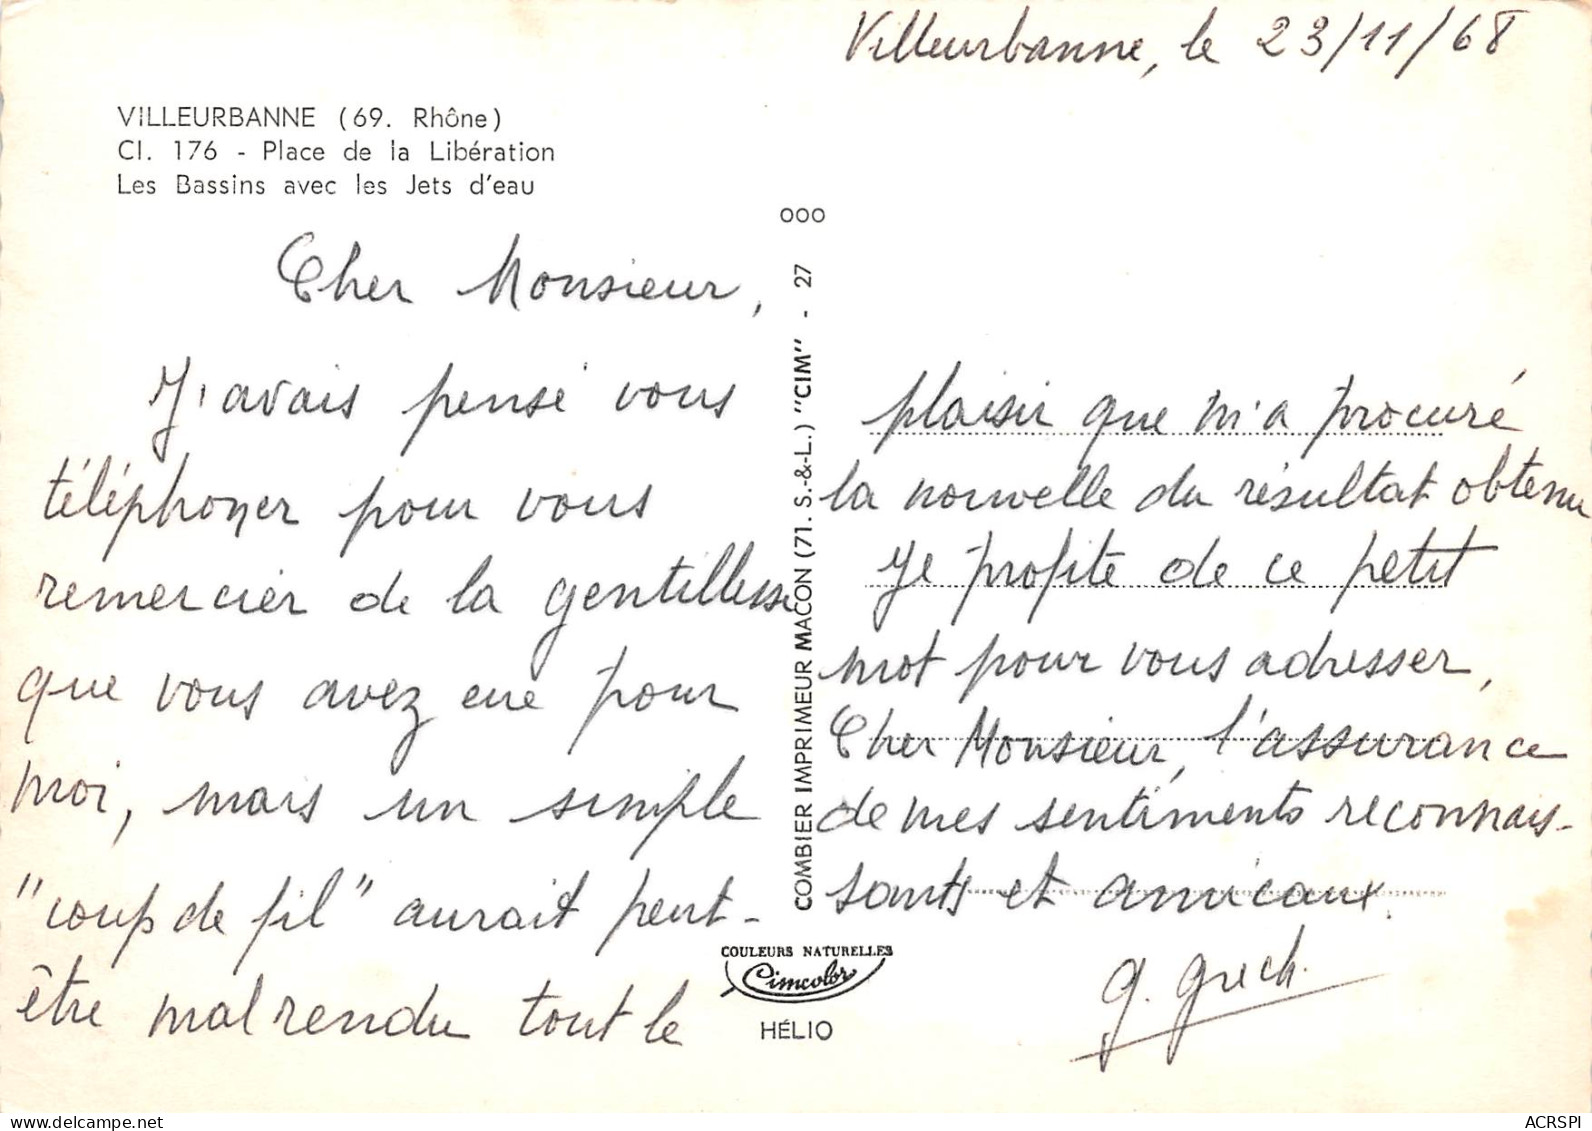 Villeurbanne, le 23/11/68
VILLEURBANNE (69. Rhône)
Cl. 176 - Place de la Libération
Les Bassins avec les Jets d'eau
Cher Monsieur,
J'avais pensé vous
téléphoner pour vous
remercier de la gentillesse
que vous avez eue pour
moi, mais un simple
"coup de fil" aurait peut-
être mal rendu tout le
000
COMBIER IMPRIMEUR MACON (71. S.-&-L.) "CIM" - 27
COULEURS NATURELLES
Cimcolor
HÉLIO
plaisir que m'a procuré
la nouvelle du résultat obtenu
Je profite de ce petit
mot pour vous adresser,
Cher Monsieur, l'assurance
de mes sentiments reconnais-
sants et amicaux.
G. Grech.
ACRSPI